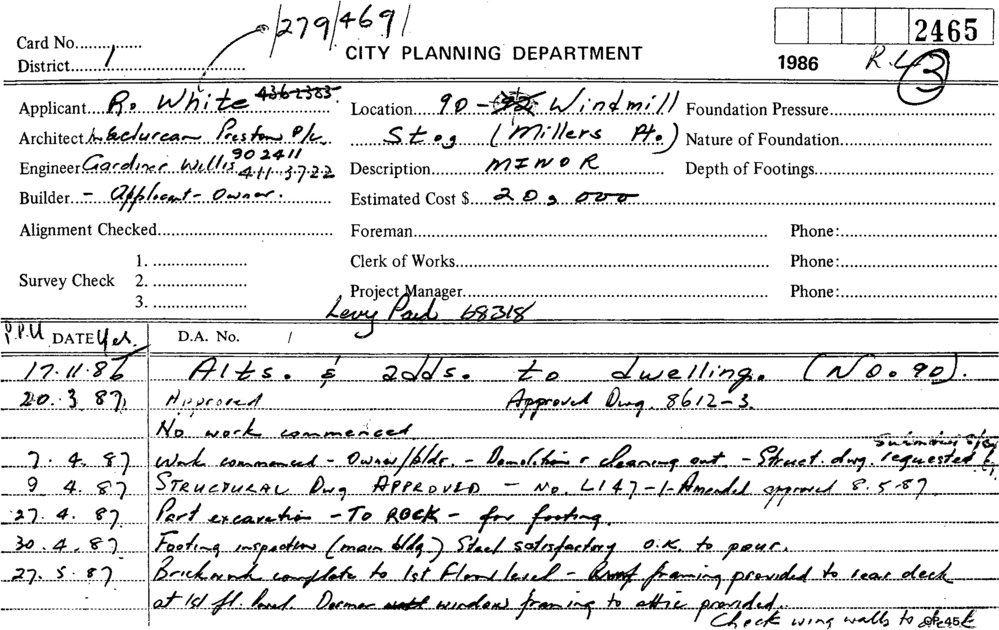 279/469
Card No...............
CITY PLANNING DEPARTMENT
2465
District...1...
1986
R.L
3
Applicant R. White 4362383
Location 90-92 Windmill
Foundation Pressure
Architect Preston P/L
St., (Millers Pt.)
Nature of Foundation
Engineer Gardiner Willis 902411 411-3722
Description MINOR
Depth of Footings
Builder - Applicant - Owner.
Estimated Cost $ 20,000
Alignment Checked
Foreman
Phone:
Survey Check
1.
Clerk of Works
Phone:
2.
3.
Project Manager
Phone:
Levy Paid 68318
P.P.U DATE Yes.
D.A. No. /
17.11.86 Alts. & adds. to dwelling. (No. 90).
20.3 87 Approved Approved Dwg. 8612-3.
No work commenced
7.4.87 Work commenced - Owner/bldr. - Demolition & cleaning out. - Struct. dwg. requested
9 4.87 STRUCTURAL Dwg APPROVED - No. L147-1-Amended approved 8.5.87
27.4.87 Part excavation - To ROCK - for footing.
30.4.87 Footing inspection (main bldg) Steel satisfactory O.K. to pour.
27.5.87 Brickwork complete to 1st Floor level - framing provided to rear deck
at 1st fl. level. Dormer window framing to attic provided.
Check wing walls to
CP.45